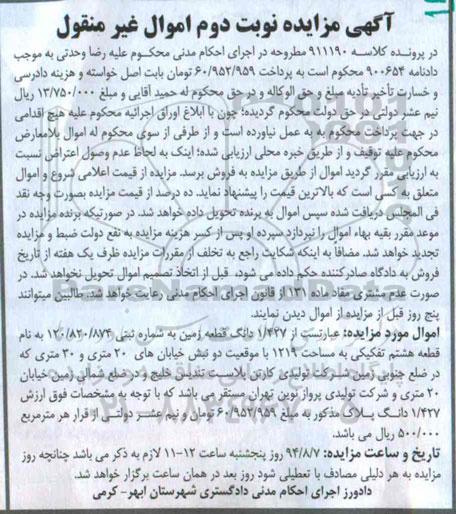 آگهی مزایده نوبت دوم اموال غیر منقول
در پرونده کلاسه ۹۱۱۱۹۰ مطروحه در اجرای احکام مدنی محکوم علیه رضا وحدتی به موجب
دادنامه ۹۰۰۶۵۴ محکوم است به پرداخت ۶۰/۹۵۲/۹۵۹ تومان بابت اصل خواسته و هزینه دادرسی
و خسارت تأخیر تأدیه مبلغ و حق الوکاله و در حق محکوم له حمید آقایی و مبلغ ۱۳/۷۵۰/۰۰۰ ریال
نیم عشر دولتی در حق دولت محکوم گردیده؛ چون با ابلاغ اوراق اجرائیه محکوم علیه هیچ اقدامی
در جهت پرداخت محکوم به به عمل نیاورده است و از طرفی از سوی محکوم له اموال بلامعارض
محکوم علیه توقیف و از طریق خبره محلی ارزیابی شده؛ اینک به لحاظ عدم وصول اعتراض نسبت
به ارزیابی مقرر گردید اموال از طریق مزایده به فروش برسد. مزایده از قیمت اعلامی شروع و اموال
متعلق به کسی است که بالاترین قیمت را پیشنهاد نماید. ده درصد از قیمت مزایده بصورت وجه نقد
فی المجلس دریافت شده سپس اموال به برنده تحویل داده خواهد شد. در صورتیکه برنده مزایده در
موعد مقرر بقیه بهاء اموال را نپردازد سپرده او پس از کسر هزینه مزایده به نفع دولت ضبط و مزایده
تجدید خواهد شد. مضافا به اینکه شکایت راجع به تخلف از مقررات مزایده ظرف یک هفته از تاریخ
فروش به دادگاه صادرکننده حکم داده می شود، قبل از اتخاذ تصمیم اموال تحویل نخواهد شد. در
صورت عدم مشتری مفاد ماده ۱۳۱ از قانون اجرای احکام مدنی رعایت خواهد شد. طالبین میتوانند
پنج روز قبل از مزایده از اموال دیدن نمایند.
اموال مورد مزایده: عبارتست از ۱/۴۲۷ دانگ قطعه زمین به شماره ثبتی ۱۲۰/۸۲۰/۸۷۴ به نام
قطعه هشتم تفکیکی به مساحت ۱۲۱۹ با موقعیت دو نبش خیابان های ۲۰ متری و ۳۰ متری که
در ضلع جنوبی زمین شرکت تولیدی کارتن پلاست تندیس خلیج و در ضلع شمالی زمین خیابان
۲۰ متری و شرکت تولیدی پرواز نوین تهران مستقر می باشد که با توجه به مشخصات فوق ارزش
۱/۴۲۷ دانگ پلاک مذکور به مبلغ ۶۰/۹۵۲/۹۵۹ تومان و نیم عشر دولتی از قرار هر مترمربع
۵۰۰/۰۰۰ ریال می باشد.
تاریخ و ساعت مزایده: ۹۴/۸/۷ روز پنجشنبه ساعت ۱۲-۱۱ لازم به ذکر می باشد چنانچه روز
مزایده به هر دلیلی مصادف با تعطیلی شود روز بعد در همان ساعت برگزار خواهد شد.
دادورز اجرای احکام مدنی دادگستری شهرستان ابهر- کرمی